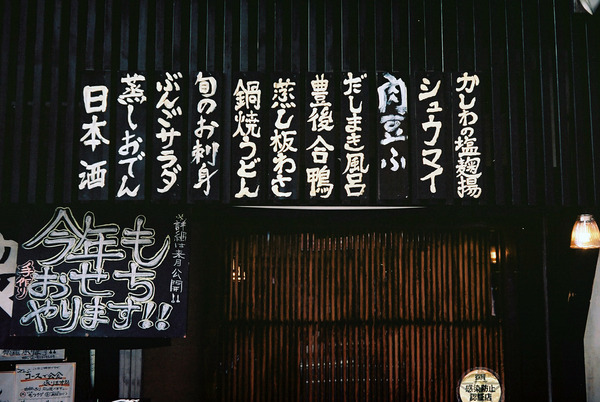 かしわの塩麹揚
シュウマイ
肉豆ふ
だしまき風呂
豊後合鴨
蒸し板わさ
鍋焼うどん
旬のお刺身
ぶんごサラダ
蒸しおでん
日本酒
今年も
手作り
おせち
やります!!
詳細は来月公開!!
感染防止
認証店